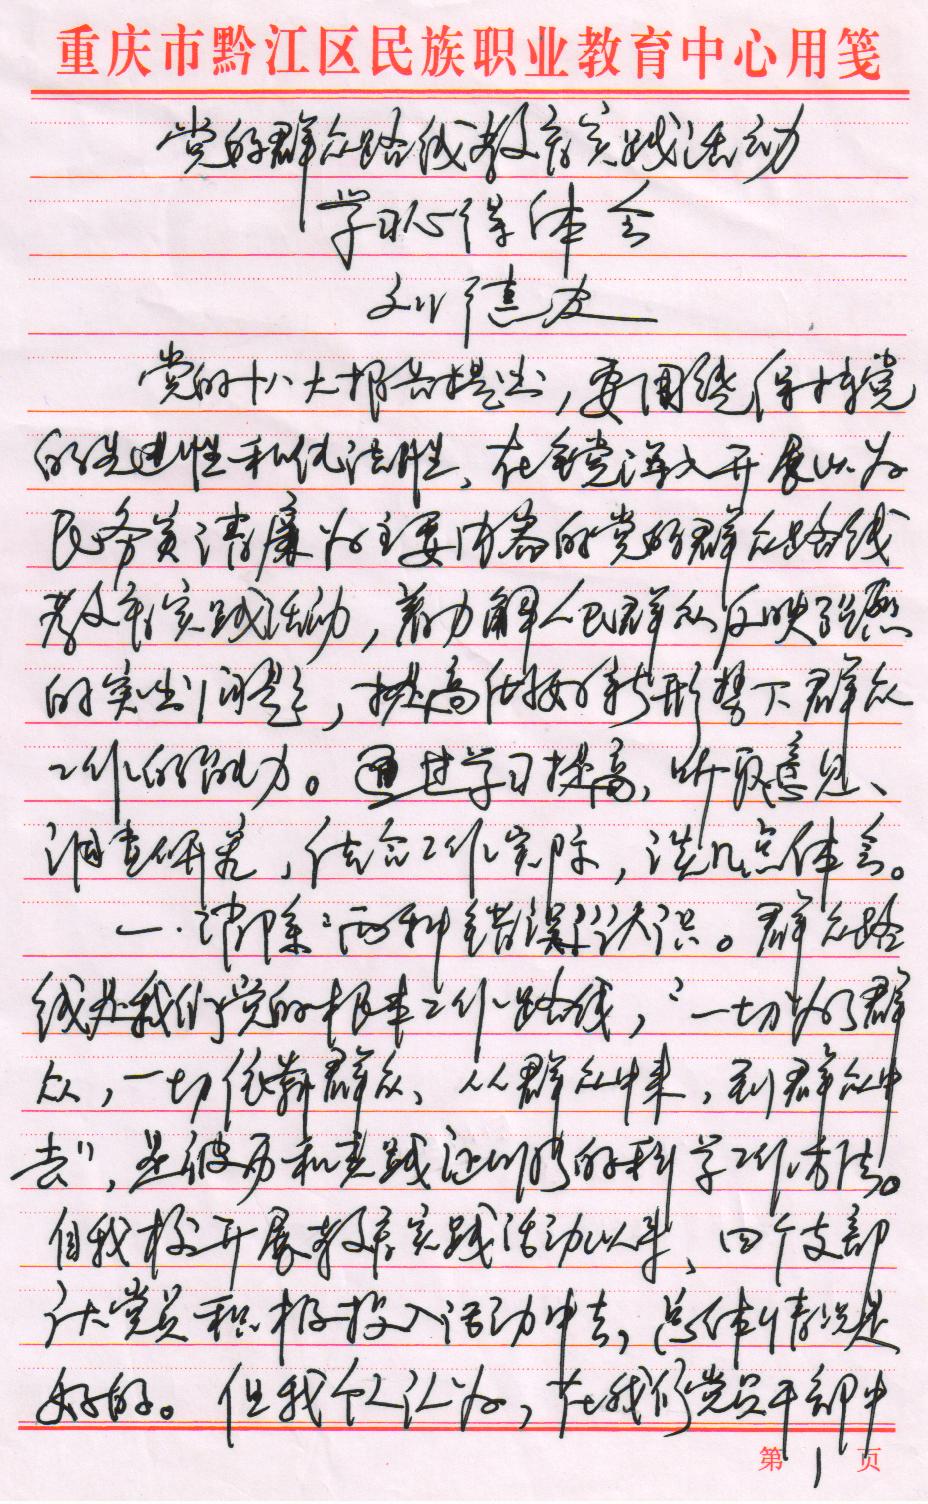 重庆市黔江区民族职业教育中心用笺
党的群众路线教育实践活动
学习心得体会
刘德
党的十八大报告提出，要围绕保持党
的先进性和纯洁性，在全党深入开展以为
民务实清廉为主要内容的党的群众路线
教育实践活动，着力解人民群众反映强烈
的突出问题，提高做好新形势下群众
工作的能力。通过学习提高，听取意见、
调查研究，结合工作实际，谈几点体会。
一.清除"两种错误"认识。群众路
线是我们党的根本工作路线，"一切为了群
众，一切依靠群众、从群众中来，到群众中
去"，是被历和实践证明的科学工作方法。
自我校开展教育实践活动以来，四个支部
党员积极投入活动中去，总体情况是
好的。但我个人认为，在我们党员干部中
第1页